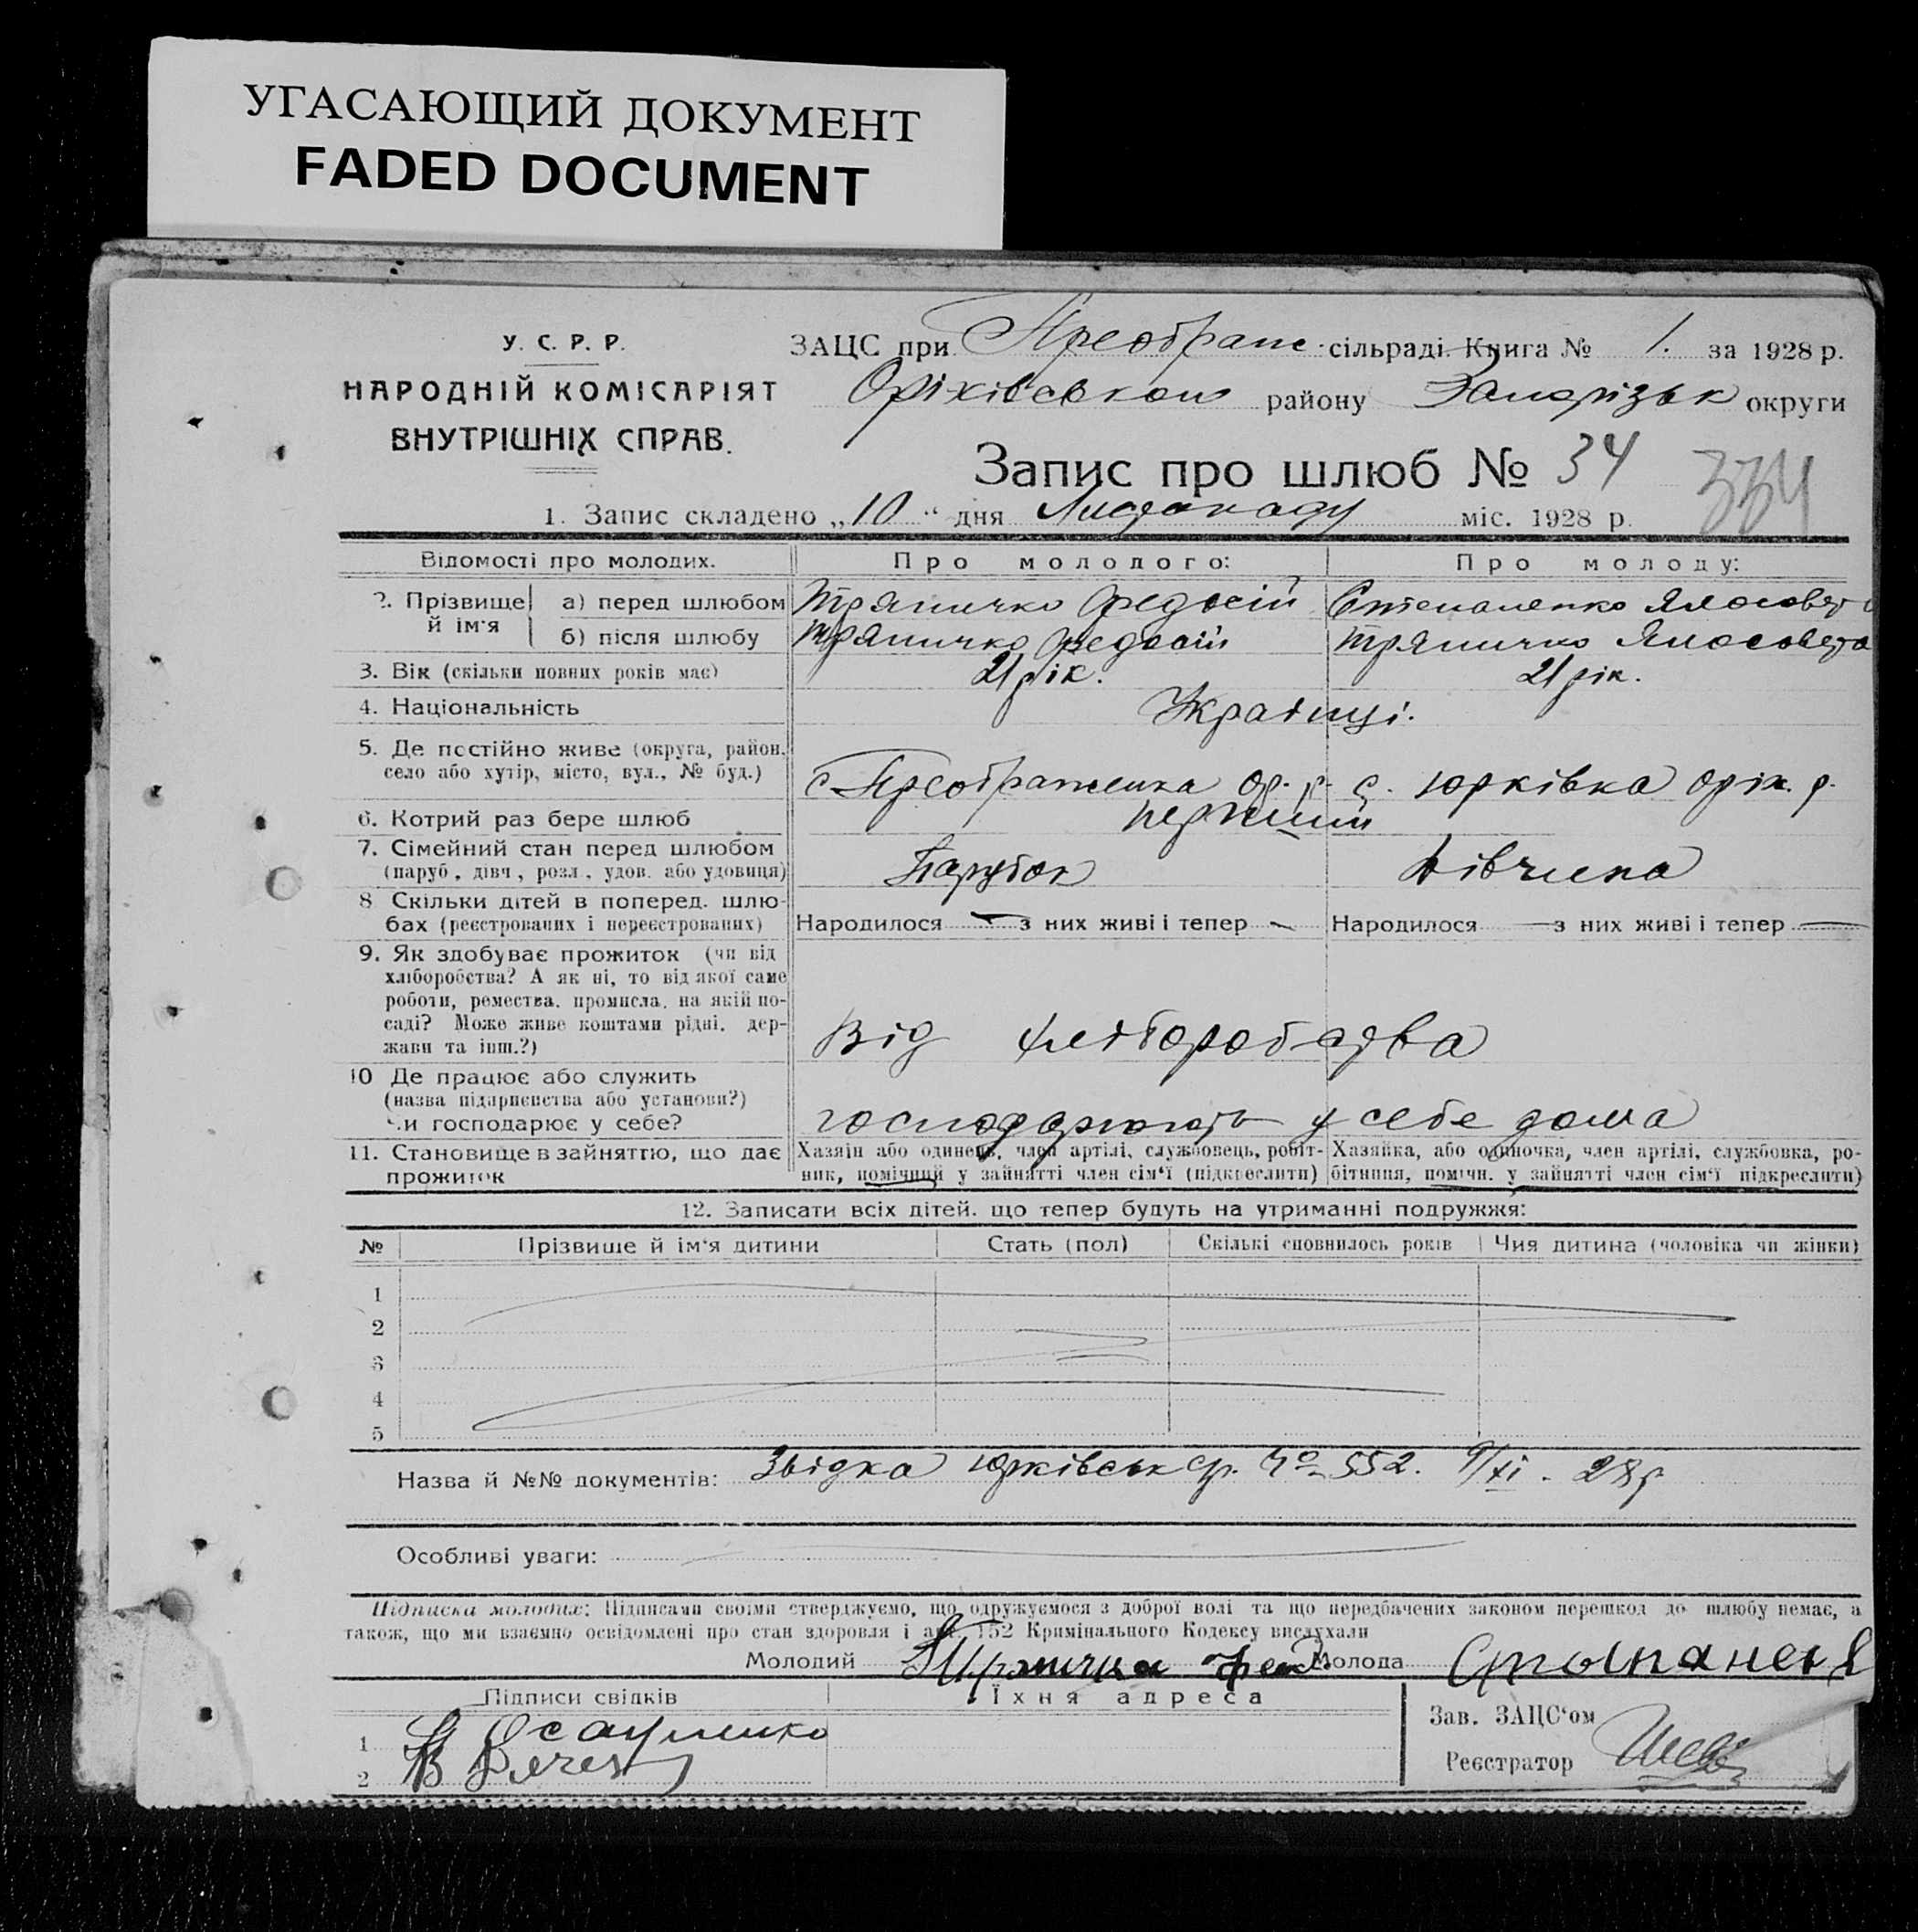 УГАСАЮЩИЙ ДОКУМЕНТ
FADED DOCUMENT
У. С. Р. Р.
НАРОДНІЙ КОМІСАРІЯТ
ВНУТРІШНІХ СПРАВ.
ЗАЦС при Преображ. сільраді. Книга № 1. за 1928 р.
Оріхівського району Запорізьк округи
Запис про шлюб № 34
334
1. Запис складено „10“ дня Листопаду міс. 1928 р.
Відомості про молодих. Про молодого: Про молоду:
2. Прізвище й ім'я
а) перед шлюбом Тряпичко Федосій Степаненко
б) після шлюбу Тряпичко Федосій Тряпичко
3. Вік (скільки повних років має) 21 рік. 21 рік.
4. Національність Українці.
5. Де постійно живе (округа, район.
село або хутір, місто, вул., № буд.) с. Преображенка Ор. р. с. Юрківка Оріх. р.
6. Котрий раз бере шлюб перший
7. Сімейний стан перед шлюбом
(паруб., дівч., розл., удов. або удовиця) Парубок Дівчина
8 Скільки дітей в поперед. шлю-
бах (реєстрованих і нереєстрованих) Народилося — з них живі і тепер — Народилося — з них живі і тепер —
9. Як здобуває прожиток (чи від
хліборобства? А як ні, то від якої саме
роботи, ремества. промисла. на якій по-
саді? Може живе коштами рідні. дер-
жави та інш.?) Від хліборобства
10 Де працює або служить
(назва підприємства або установи?)
Чи господарює у себе? господарюють у себе дома
11. Становище в зайняттю, що дає
прожиток
Хазяїн або одинець, член артілі, службовець, робіт-
ник, помічний у зайнятті член сім'ї (підкреслити)
Хазяйка, або одиночка, член артілі, службовка, ро-
бітниця, помічн. у зайнятті член сім'ї підкреслити)
12. Записати всіх дітей. що тепер будуть на утриманні подружжя:
№ Прізвище й ім'я дитини Стать (пол) Скількі сповнилось років Чия дитина (чоловіка чи жінки)
1
2
3
4
5
Назва й №№ документів: Звідка Юрківськ ср. № 552. 9/XI - 28 р
Особливі уваги:
Підписи молодих: Підписами своїми стверджуємо, що одружуємося з доброї волі та що передбачених законом перешкод до шлюбу немає, а
також, що ми взаємно освідомлені про стан здоровля і арт. 152 Кримінального Кодексу вислухали
Молодий Тряпичка Фед Молода
Підписи свідків Їхня адреса
1 Осауленко
2 В
Зав. ЗАЦС'ом
Реєстратор